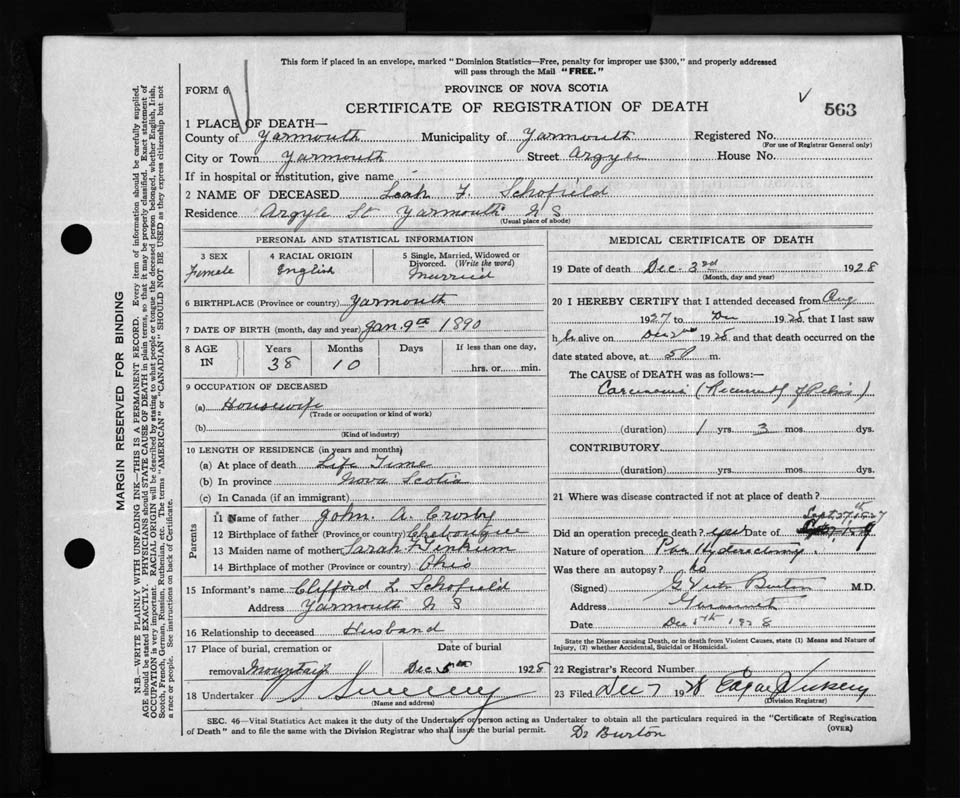 This form if placed in an envelope, marked "Dominion Statistics—Free, penalty for improper use $300," and properly addressed
will pass through the Mail "FREE."
FORM 6
PROVINCE OF NOVA SCOTIA
CERTIFICATE OF REGISTRATION OF DEATH
563
1 PLACE OF DEATH—
County of Yarmouth Municipality of Yarmouth Registered No.
(For use of Registrar General only)
City or Town Yarmouth Street Argyle House No.
If in hospital or institution, give name
2 NAME OF DECEASED Leah F. Schofield
Residence Argyle St Yarmouth N S
(Usual place of abode)
PERSONAL AND STATISTICAL INFORMATION
3 SEX 4 RACIAL ORIGIN 5 Single, Married, Widowed or
Divorced. (Write the word)
Female English Married
6 BIRTHPLACE (Province or country) Yarmouth
7 DATE OF BIRTH (month, day and year) Jan. 9th 1890
8 AGE IN Years Months Days If less than one day,
38 10 hrs. or min.
9 OCCUPATION OF DECEASED
(a) Housewife
(Trade or occupation or kind of work)
(b)
(Kind of industry)
10 LENGTH OF RESIDENCE (in years and months)
(a) At place of death Life Time
(b) In province Nova Scotia
(c) In Canada (if an immigrant)
Parents
11 Name of father John. A. Crosby
12 Birthplace of father (Province or country) Chebougue
13 Maiden name of mother Sarah F Tinkum
14 Birthplace of mother (Province or country) Ohio
15 Informant's name Clifford L. Schofield
Address Yarmouth N S
16 Relationship to deceased Husband
17 Place of burial, cremation or Date of burial
removal Mountain Dec 5th 1928
18 Undertaker Sweeny
(Name and address)
MEDICAL CERTIFICATE OF DEATH
19 Date of death Dec. 3rd 1928
(Month, day and year)
20 I HEREBY CERTIFY that I attended deceased from Aug
1927 to Dec 1928, that I last saw
her alive on Dec 2nd 1928 and that death occurred on the
date stated above, at m.
The CAUSE of DEATH was as follows:—
Carcinoma (Recurrent) of Pelvis)
(duration) 1 yrs. 3 mos. dys.
CONTRIBUTORY
(duration) yrs. mos. dys.
21 Where was disease contracted if not at place of death?
Sept. 27th 1927
Did an operation precede death? yes Date of
Nature of operation Pan Hysterectomy.
Was there an autopsy? No
(Signed) Burton M.D.
Address Yarmouth
Date Dec 5th 1928
State the Disease causing Death, or in death from Violent Causes, state (1) Means and Nature of
Injury, (2) whether Accidental, Suicidal or Homicidal.
22 Registrar's Record Number
23 Filed Dec 7 1928 Edgar Vickery
(Division Registrar)
SEC. 46—Vital Statistics Act makes it the duty of the Undertaker or person acting as Undertaker to obtain all the particulars required in the "Certificate of Registration
of Death" and to file the same with the Division Registrar who shall issue the burial permit.
Dr Burton
(OVER)
MARGIN RESERVED FOR BINDING
N.B.—WRITE PLAINLY WITH UNFADING INK—THIS IS A PERMANENT RECORD. Every item of information should be carefully supplied.
AGE should be stated EXACTLY. PHYSICIANS should STATE CAUSE OF DEATH in plain terms, so that it may be properly classified. Exact statement of
OCCUPATION is very important. RACIAL ORIGIN will be described by stating to what people or tongue the deceased person belonged, whether English, Irish,
Scotch, French, German, Russian, Ruthenian, etc. The terms "AMERICAN" or "CANADIAN" SHOULD NOT BE USED as they express citizenship but not
a race or people. See instructions on back of Certificate.